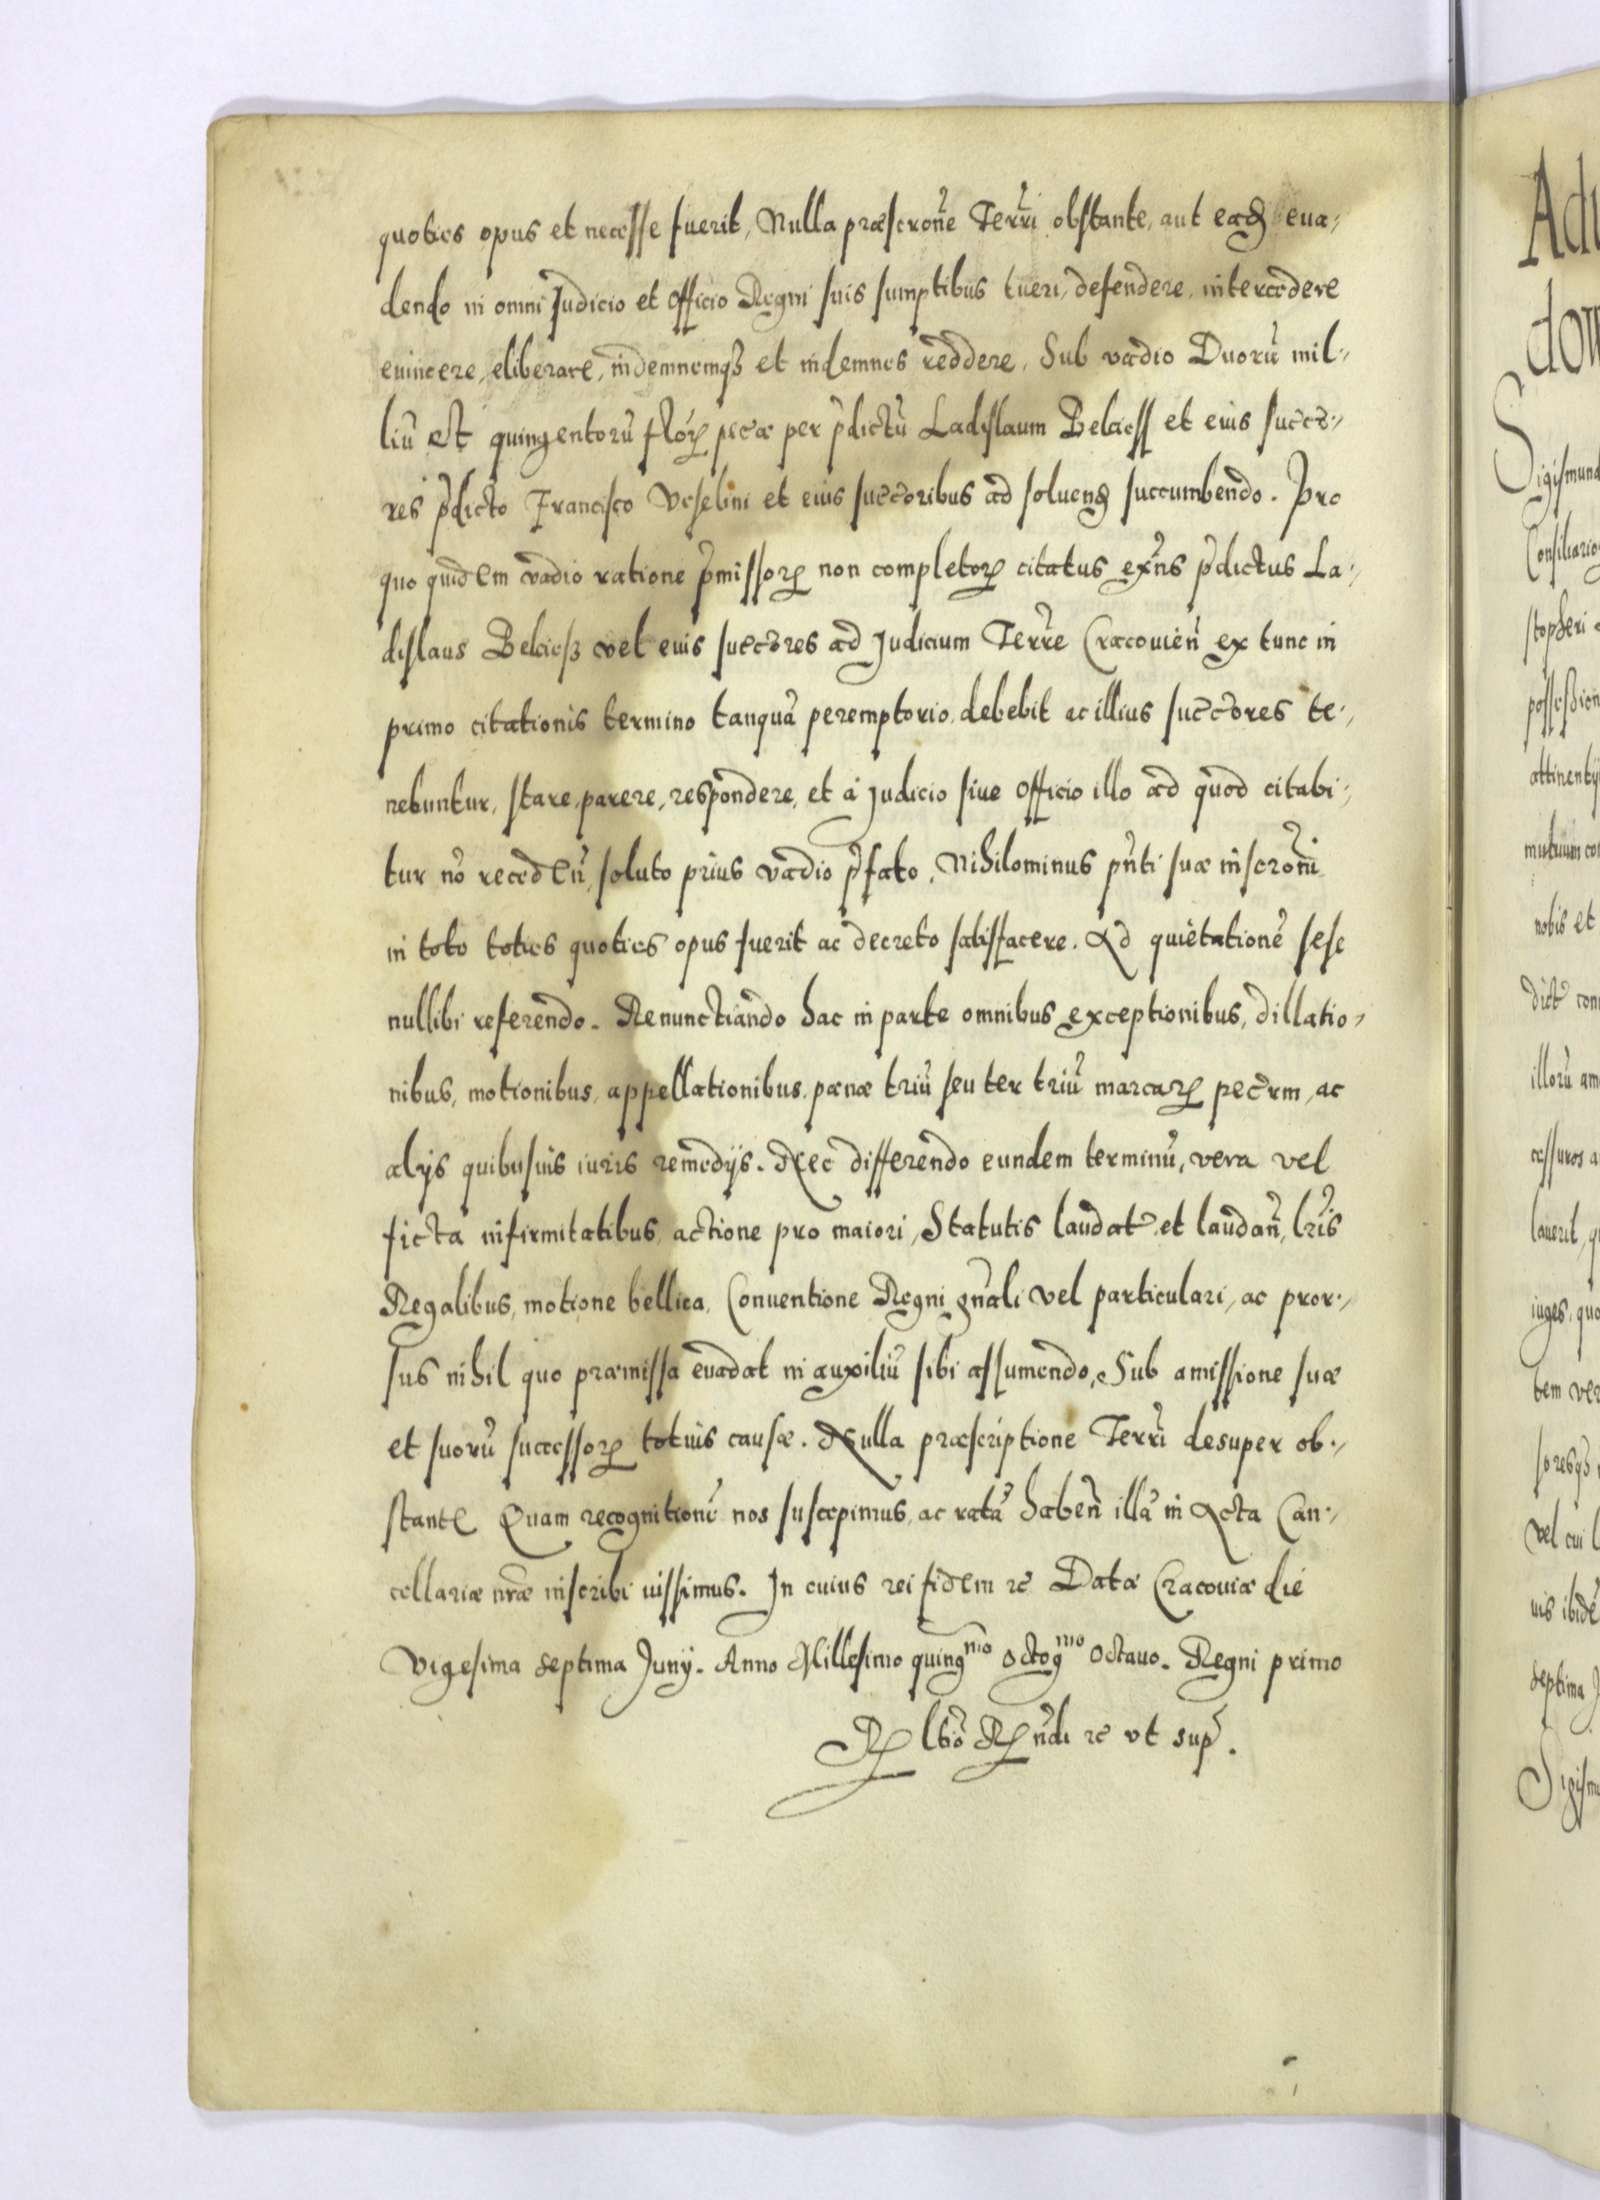 quoties opus et necesse fuerit, Nulla præscrone Terri obstante, aut eadȝ eua-
dendo in omni Judicio et Officio Regni suis sumptibus tueri, defendere, intercedere
euincere, eliberare, indemnemqȝ et indemnes reddere, Sub vadio Duorū mil-
liū et quingentorū floꝝ pecæ per p̃dictū Ladislaum Belciess et eius succ̃-
res p̃dicto Francisco Veselini et eius succ̃oribus ad soluendȝ succumbendo. Pro
quo quidem vadio ratione p̃missoꝝ non completoꝝ citatus exñs p̃dictus La-
dislaus Belciesȝ vel eius succ̃res ad Judicium Terrẽ Cracouień ex tunc in
primo citationis termino tanquã peremptorio, debebit ac illius succ̃ores te-
nebuntur, stare, parere, respondere, et à Judicio siue Officio illo ad quod citabi-
tur nõ recedeñ, soluto prius vadio p̃fato, Nihilominus pñti suæ inscroñi
in toto toties quoties opus fuerit ac decreto satisfacere. Ad quietationẽ sese
nullibi referendo. Renunctiando hac in parte omnibus exceptionibus, dillatio-
nibus, motionibus, appellationibus, pænæ triū seu ter triū marcaꝝ pec̃rm, ac
alijs quibusuis iuris remedijs. Nec differendo eundem terminū, vera vel
ficta infirmitatibus, actione pro maiori, Statutis laudat̃ et laudañ, lr̃is
Regalibus, motione bellica, Conuentione Regni gñali vel particulari, ac pror-
sus nihil quo præmissa euadat in auxiliū sibi assumendo, Sub amissione suæ
et suorū successoꝝ totius causæ. Nulla præscriptione Terrĩ desuper ob-
stante. Quam recognitionẽ nos suscepimus, ac ratã habeñ illã in Acta Can-
cellariæ nr̃æ inscribi iussimus. In cuius rei fidem ꝛc̃ Datæ Cracouiæ die
Vigesima septima Junij. Anno Millesimo quingmo Octogmo Octauo. Regni primo
Rꝝ lõio Rꝝ ñdi ꝛc̃ vt sup̃.
Adu
dow
Sigismund
Consiliario
stopheri
possession
attinentij
mutuum con
nobis et
dict̃ con
illorũ am
cessuros a
lauerit, q
iuges, quo
tem ver
soresqȝ
vel cui l
uis ibidẽ
septima J
Sigism